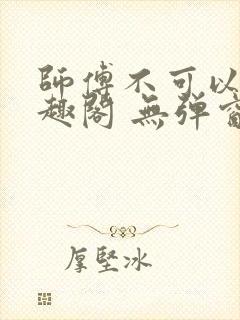 師傅不可以
趣閣 無彈窗
厚堅冰